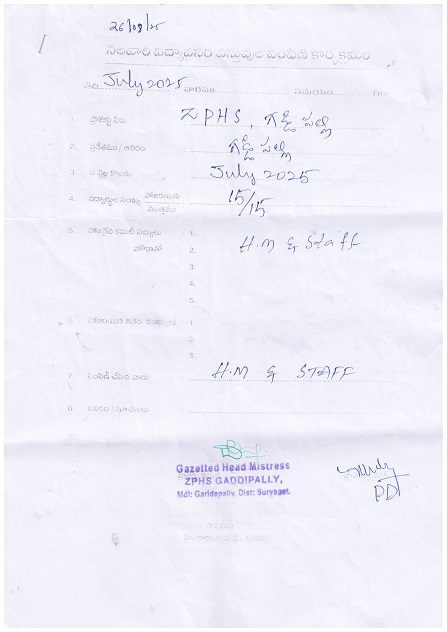 26/08/25
నెలవారీ విద్యావసర వస్తువుల పంపిణీ కార్యక్రమం
తేది. July 2025 వారము సమయం గం
1. ప్రాజెక్టు పేరు : ZPHS, గడ్డిపల్లి
2. ప్రదేశము / ఆవరణ : గడ్డిపల్లి
3. ఏ నెల కొరకు : July 2025
4. విద్యార్థుల సంఖ్య హాజరయిన / మొత్తము : 15/15
5. హాజరైన కమిటీ సభ్యులు 1. H.M & Staff
హోదాతో 2.
3.
4.
5.
6. హాజరయిన 1
2.
3.
7. పంపిణీ చేసిన వారు : H.M & STAFF
8. వివరణ / సూచనలు :
Gazetted Head Mistress
ZPHS GADDIPALLY,
Mdl: Garidepally, Dist: Suryapet.
PD